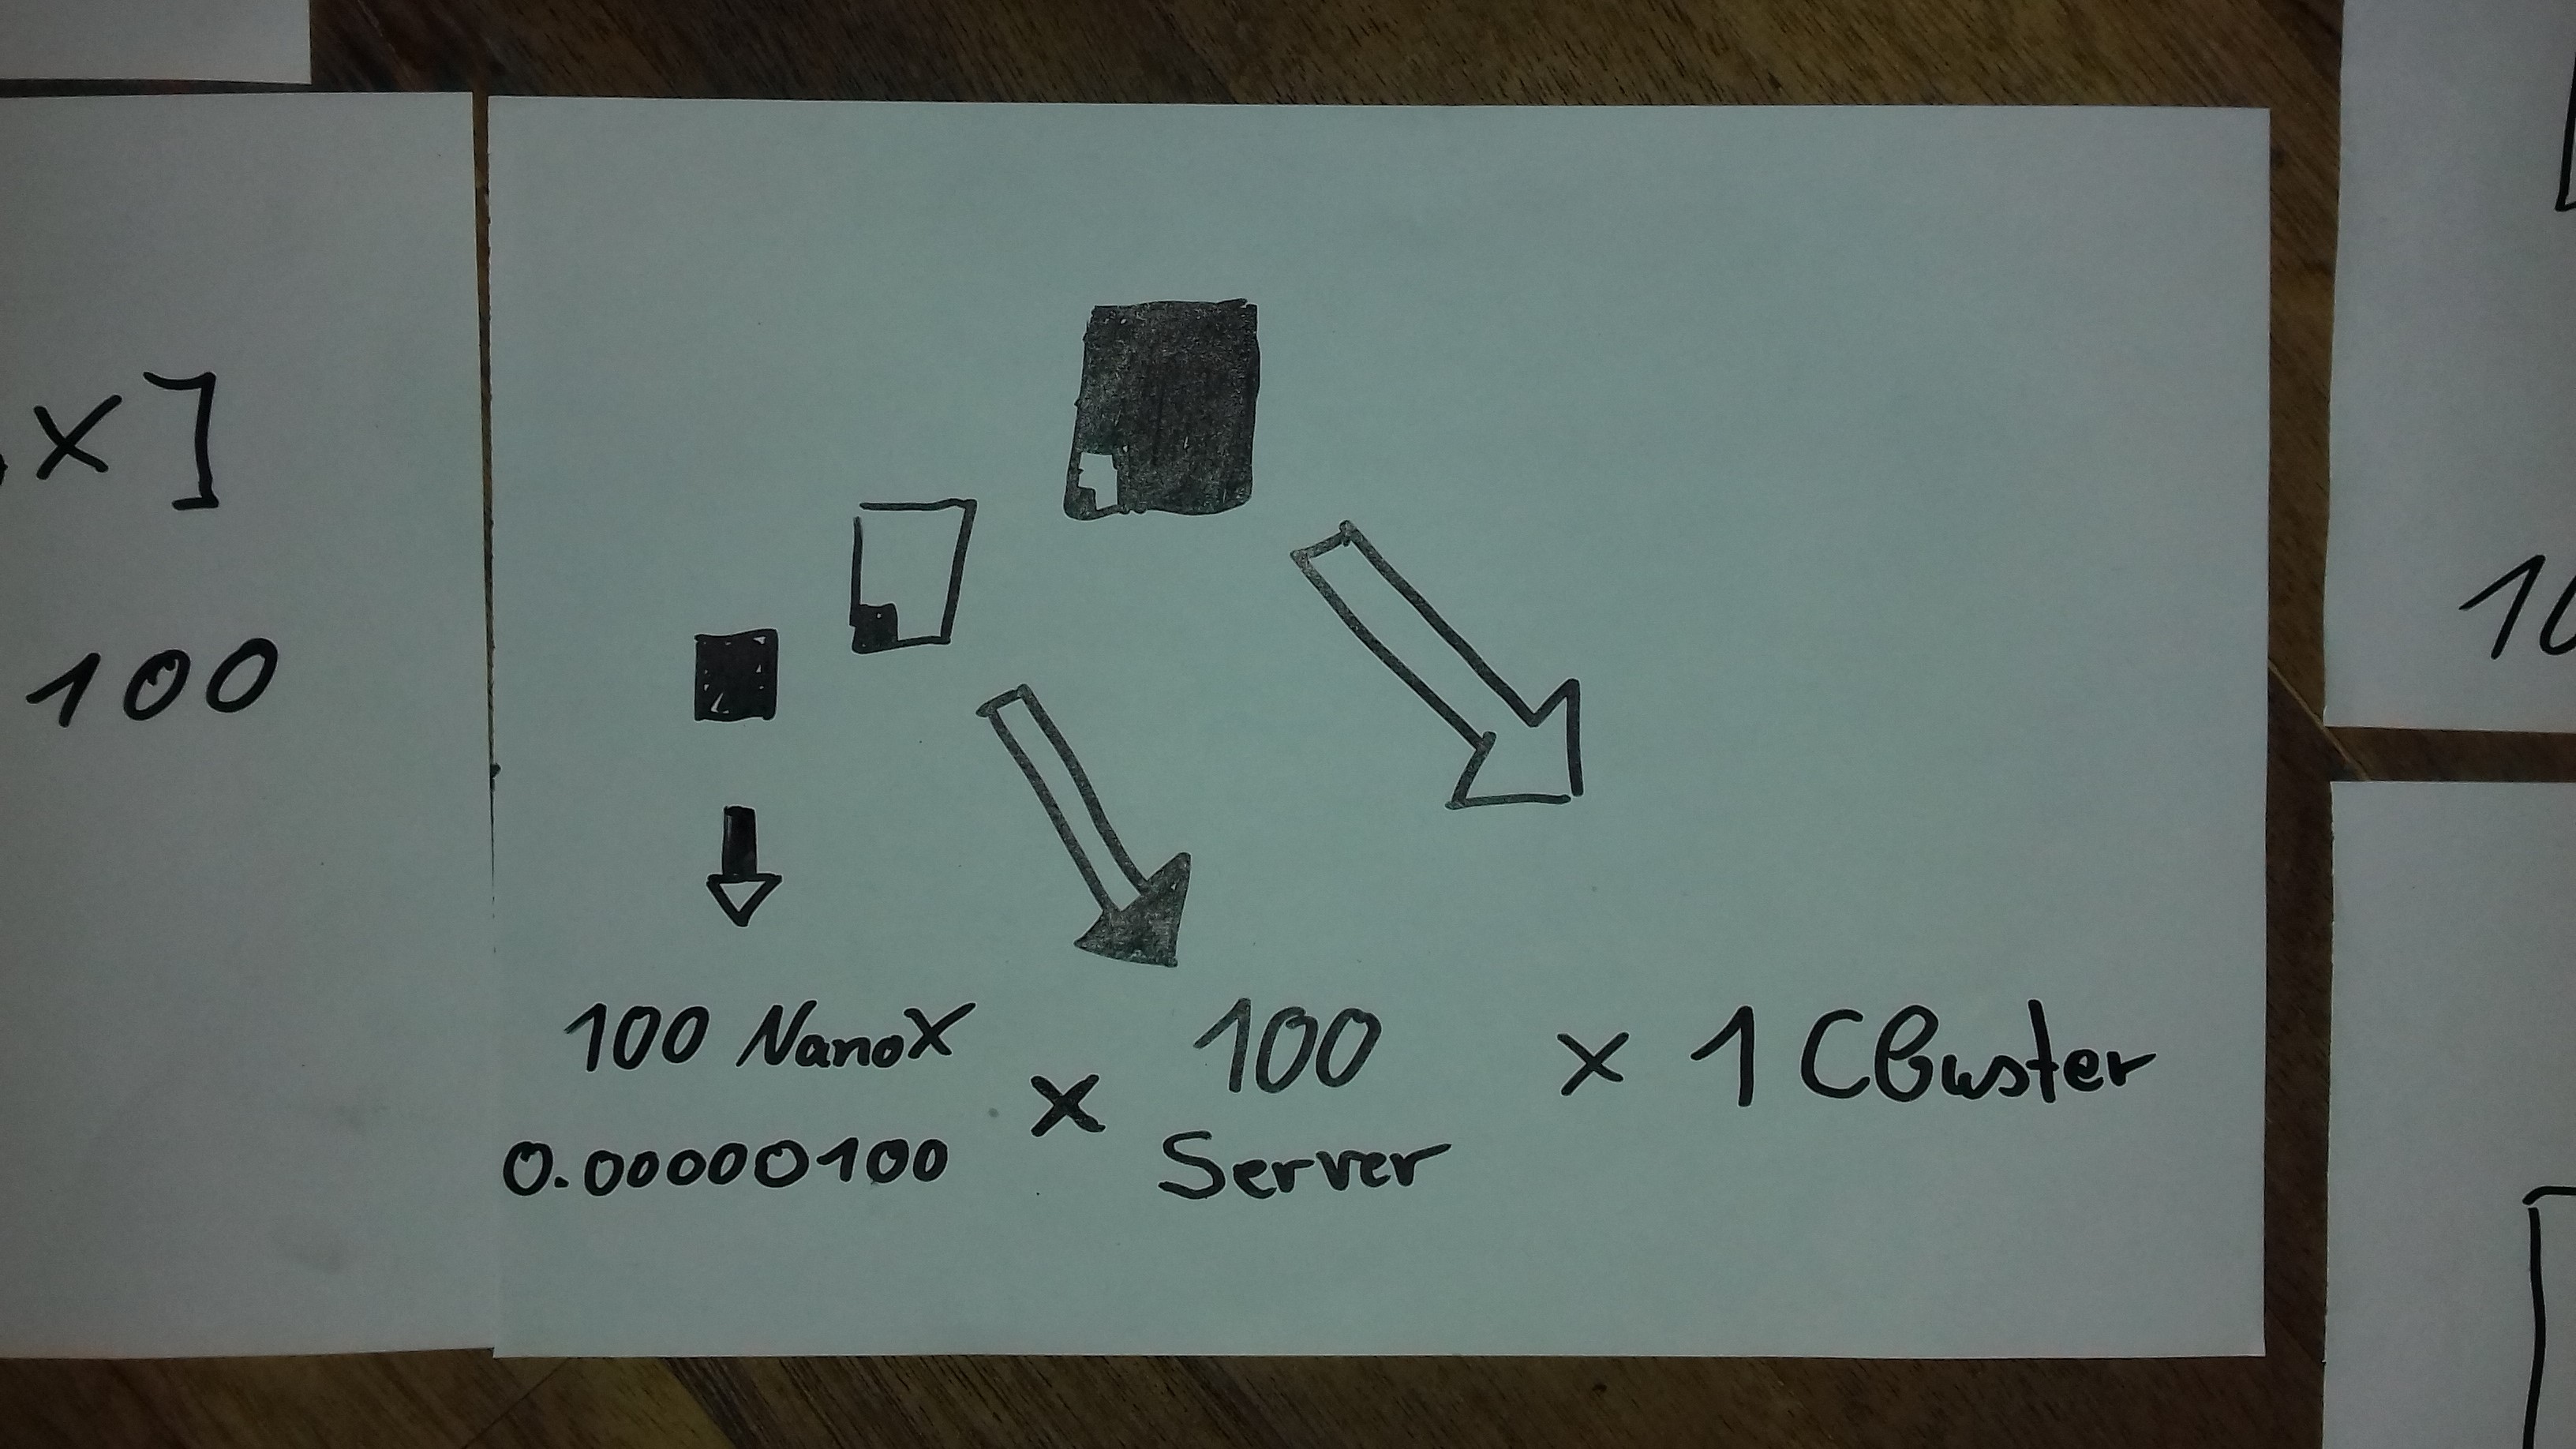 x]
100
100 NanoX
0.00000100
x
100
Server
x 1 Cluster